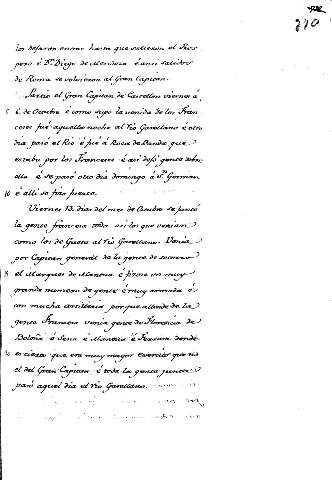 770
los dejaron entrar hasta que saliesen el Pros
pero é Dn. Diego de Mendoza é ansí salidos
de Roma se volvieron al Gran Capitan.
Partio el Gran Capitan de Castellon viernes á
5 6 de Octubre é como supo la venida de los Fran
ceses fué aquella noche al rio Garellano é otro
dia pasó el Rio é fué á Roca de Vanda que
estaba por los Franceses é así dejó gente sobre
ella é se paró otro dia domingo á Sn. German
10 é alli se fizo fuerte.
Viernes 13 dias del mes de Otubre se juntó
la gente francesa toda así los que venian
como los de Gaeta al rio Garellano. Venia
por Capitan general de la gente de socorro
15 el Marques de Mantua é fizose un muy
grande numero de gente é muy armada é
con mucha artilleria porque allende de la
gente Francesa venia gente de Florencia de
Boloña é Sena é Mantua é Ferrara donde
20 es cierto que era muy mayor exercito que no
el del Gran Capitan é toda la gente junta
pasó aquel dia el rio Garellano.